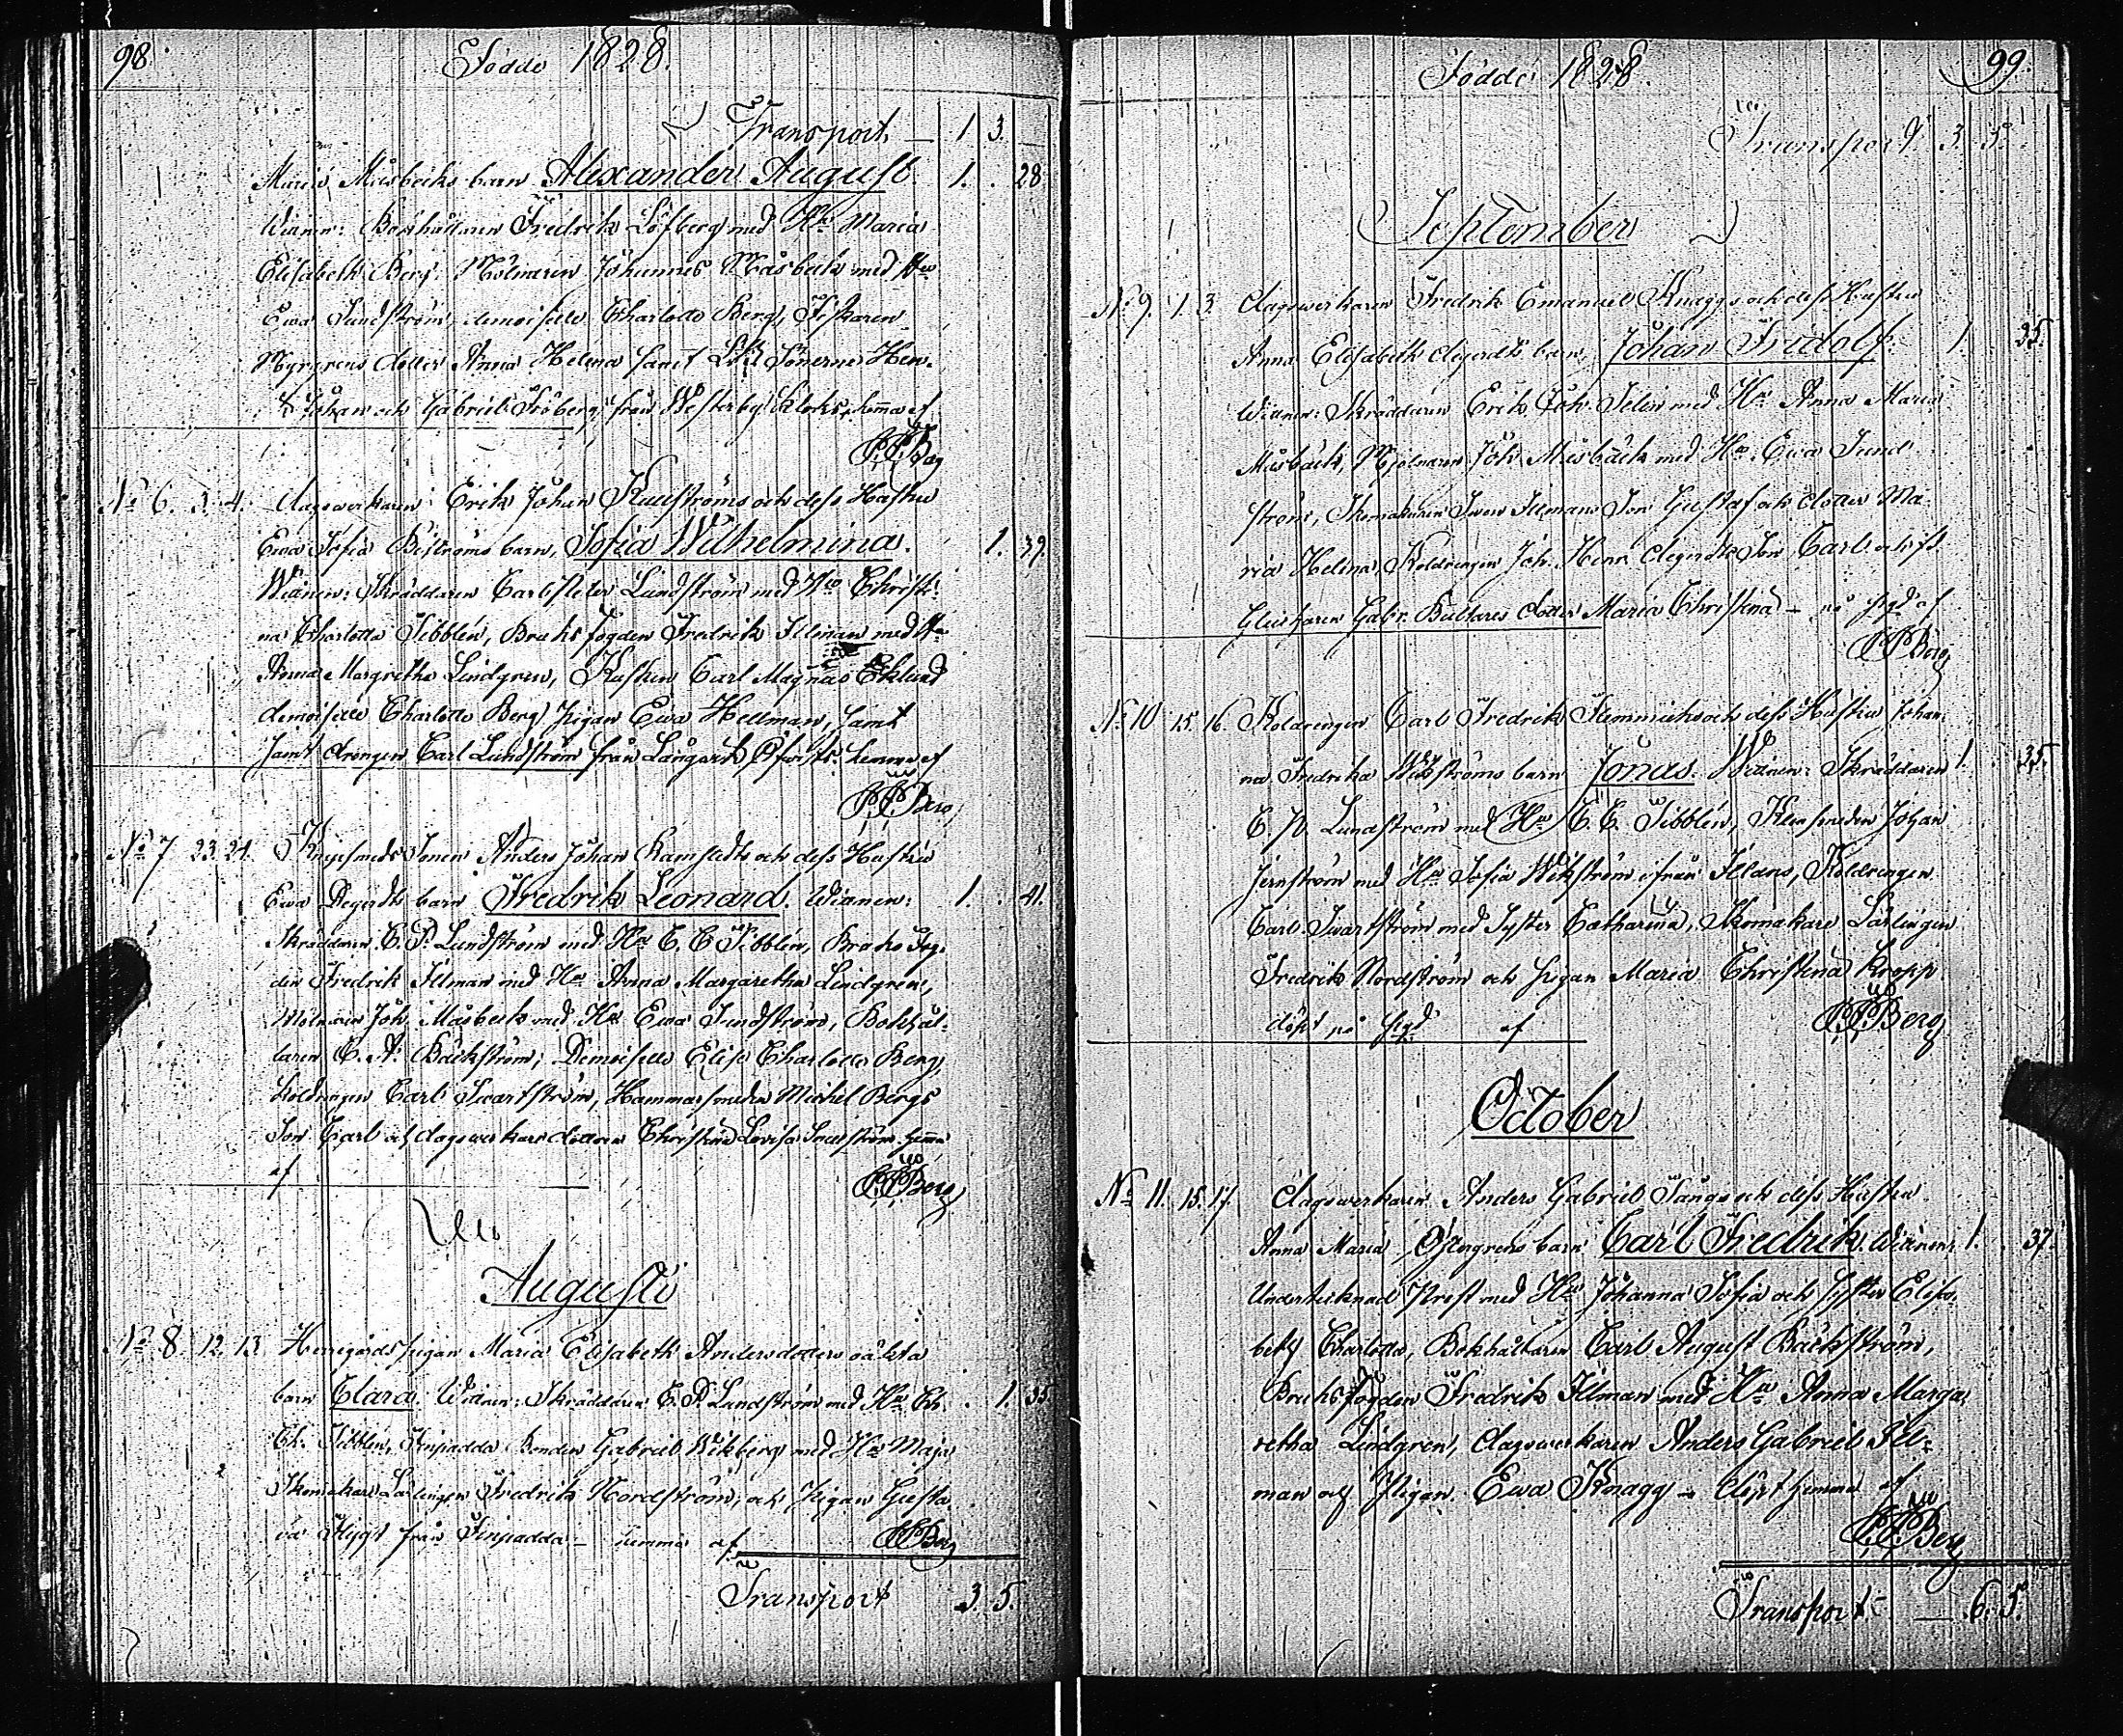 98.
Födde 1828.
Transport, — 1 3.
Maria Måsbecks barn Alexander August. 1. . 28
Wittnen: Bokhållaren Fredrik Löfberg med Hu Maria
Elisabeth Berg, Mölnaren Johannes Måsbeck med Hu
Ewa Sundström, demoiselle Charlotta Berg, Fiskaren
Nygrens dotter Anna Helena samt Sönerne Hen.
Johan och Gabriel Fröberg från Westerby hemma af
P. P. Berg
No 6. 3. 4. dagswerkaren Erik Johan Quiströms och dess Hustru
Ewa Sofia Biströms barn, Sofia Wilhelmina. 1. 39.
Wittnen: Skräddaren Carl Peter Lundström med Hu Christi-
na Charlotta Tibblén, Bruks fogden Fredrik Illman med Hu
Anna Margretha Lindgren, Kusken Carl Magnus Eklund
demoiselle Charlotta Berg, Pigan Ewa Hellman, samt
samt drengen Carl Lundström från Långark hemma af
P. P. Berg
No 7 23. 24. Knipsmeds Sonen Anders Johan Ramstedts och dess Hustru
Ewa Degerdts barn Fredrik Leonard. Wittnen: 1. . 41.
Skräddaren C. P. Lundström med Hu C. C. Tibblén, Bruks Fog-
den Fredrik Illman med Hu Anna Margaretha Lindgren,
Mölnaren Joh. Måsbeck med Hu Ewa Sundström, Bokhål-
laren C. A. Bäckström, Demoiselle Elis. Charlotta Berg,
Koldrengen Carl Swartström, Hammarsmeden Michel Bergs
Son Carl och dagswerkare dottren Christina Lovisa hemma
af P. P. Berg
Augusti
No 8. 12. 13. Herregårds pigan Maria Elisabeth Andersdotters oäkta
barn Clara. Wittnen: Skräddaren C. P. Lundström med Hu Ch. . 1. 35
Ch. Tibblén, Finpadda Bonden Gabriel Wikberg med Hu Maja
Skomakare Lärlingen Fredrik Nordström, och Pigan Gusta
va Flygt från Finpadda — hemma af P. P. Berg
Transport 3. 5.
Födde 1828.
99.
Transport 3. 5.
September
No 9. 1. 3. dagswerkaren Fredrik Emanuel Knaggs och dess Hustru
Anna Elisabeth degerdts barn, Johan Fridolf. 1. 35.
Wittnen: Skräddaren Erik Joh. Selin med Hu Anna Maria
Måsbäck, Mjölnaren Joh. Måsbäck med Hu Ewa Sund
ström, Skomakaren Swen Illmans Son Gustaf och dotter Ma-
ria Helena, Koldrengen Joh. Henr. degerdts Son Carl och
Gabr. dotter Maria Christina — på af
P. P. Berg
No 10. 15. 16. Koldrengen Carl Fredrik Flemmichs och dess Hustru Johan-
na Fredrika Wikströms barn Jonas. Wittnen: Skräddaren 1. 35.
C. P. Lundström med Hu C. C. Tibblén, Klensmeden Johan
Jernström med Hu Sofia Wikström ifrån Koldrengen
Carl Swartström med Syster Catharina, Skomakare Lärlingen
Fredrik Nordström och Pigan Maria Christina Kropp
döpt på af P. P. Berg
October
No 11. 15. 17. dagswerkaren Anders Gabriel Tångs och dess Hustru
Anna Maria Östergrens barn Carl Fredrik. Wittnen: 1. . 37.
Undertecknad Prest med Hu Johanna Sofia och Syster Elisa-
beth Charlotta, Bokhållaren Carl August Bäckström,
Bruksfogden Fredrik Illman med Hu Anna Marga-
retha Lindgren, dagswerkaren Anders Gabriel Ill-
man och Pigan Ewa Knagg — döpt hemma af
P. P. Berg
Transport — 6. 5.